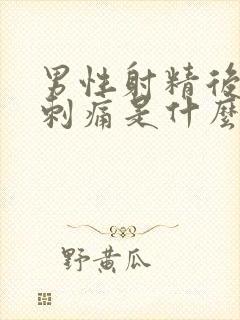 男性射精後
刺痛是什麼
野黃瓜